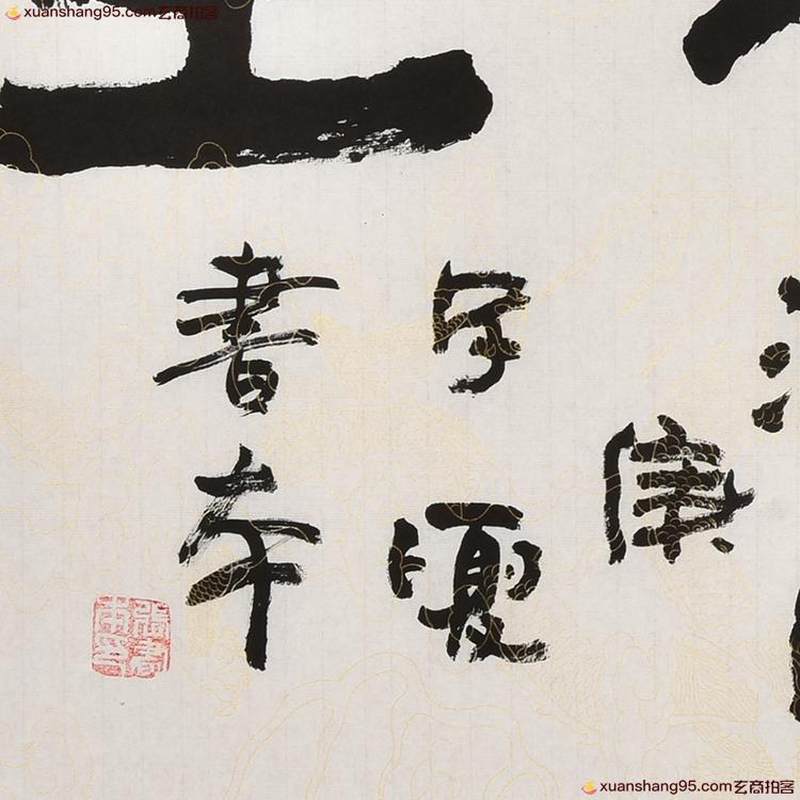 xuanshang95.com玄商拍客
庚
子夏
書本
張書本印
xuanshang95.com玄商拍客